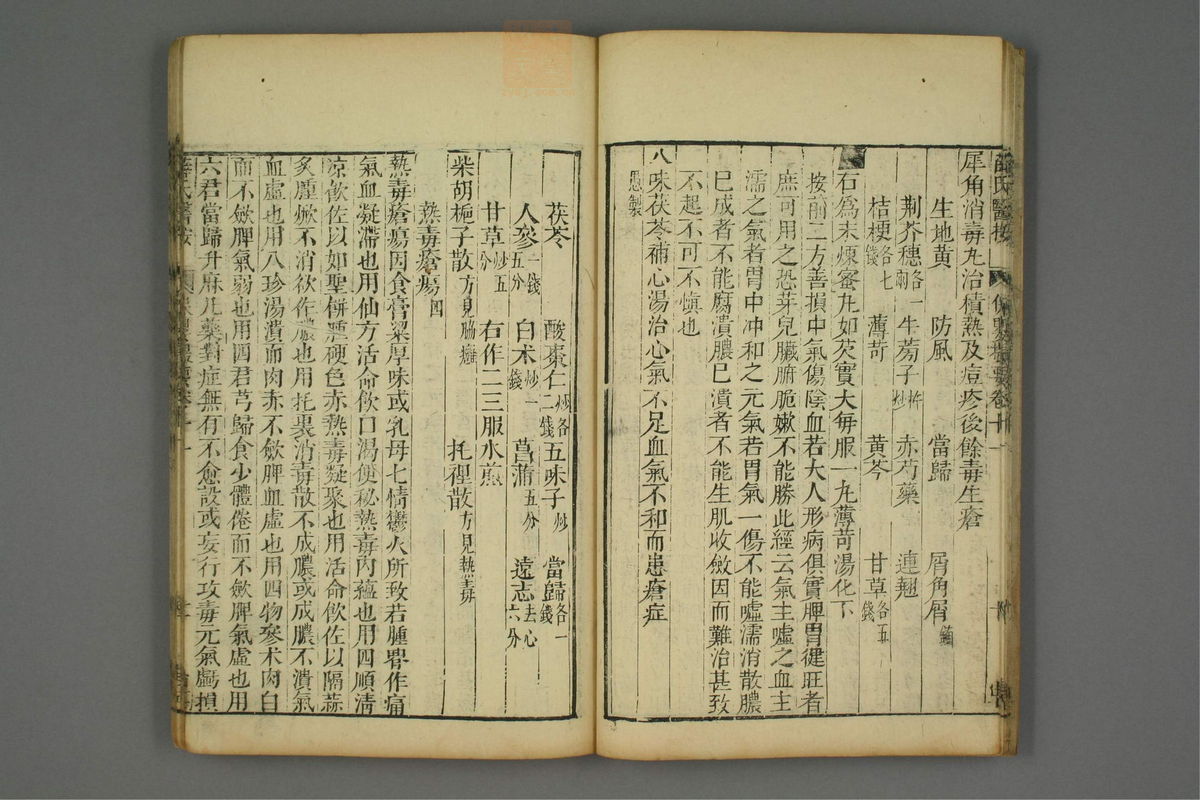 犀角消毒丸治積熱及痘疹後餘毒生瘡
生地黄 防風 當歸 屑角屑鎊
荆芥穗各一兩 牛蒡子杵炒 赤芍藥 連翹
桔梗各七錢 薄苛 黄芩 甘草各五錢
右爲末煉蜜丸如芡實大每服一丸薄苛湯化下
按前二方善損中氣傷陰血若大人形病俱實脾胃徤旺者
庶可用之恐芽兒臟腑脆嫩不能勝此經云氣主嘘之血主
濡之氣者胃中冲和之元氣若胃氣一傷不能嘘濡消散膿
巳成者不能腐潰膿巳潰者不能生肌收斂因而難治甚致
不起不可不愼也
八味茯苓補心湯治心氣不足血氣不和而患瘡症
愚製
茯苓 酸棗仁炒各二錢 五味子炒 當歸各一錢
人參一錢五分 白术炒一錢 菖蒲五分 遠志去心六分
甘草炒五分 右作二三服水煎
柴胡梔子散方見腦癰 托裡散方見熱毒
熱毒瘡瘍四
熱毒瘡瘍因食膏粱厚味或乳母七情鬱火所致若腫焮作痛
氣血凝滯也用仙方活命飲口渴便秘熱毒内蘊也用四順清
凉飲佐以如聖餅腫硬色赤熱毒凝聚也用活命飲佐以隔蒜
炙腫焮不消欲作膿也用托裏消毒散不成膿或成膿不潰氣
血虚也用八珍湯潰而肉赤不斂脾血虚也用四物參术肉白
而不斂脾氣弱也用四君芎歸食少體倦而不斂脾氣虚也用
六君當歸升麻凡藥對症無有不愈設或妄行攻毒元氣虧損